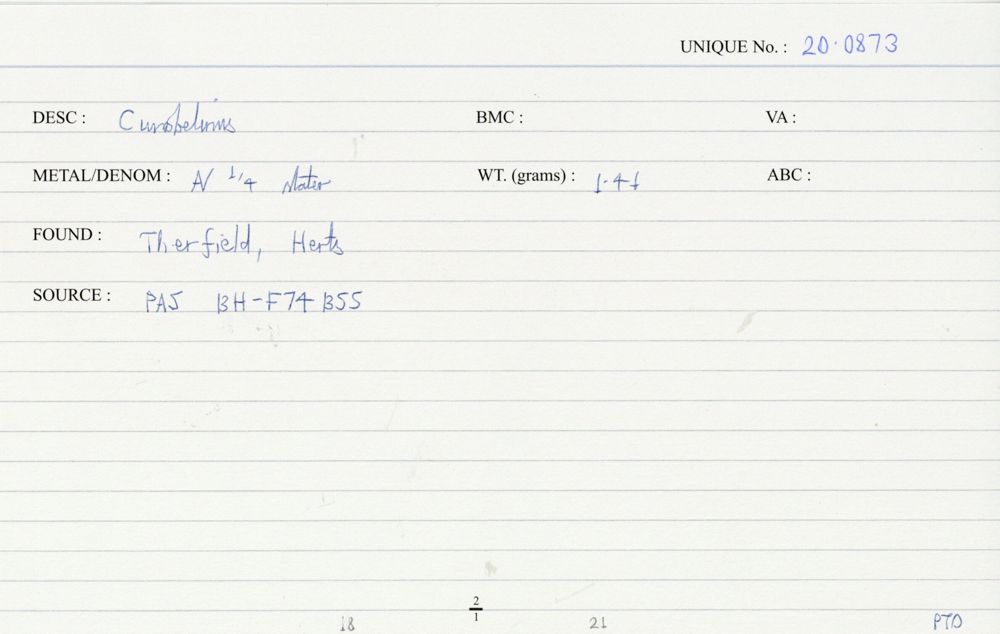 UNIQUE No. : 20·0873
DESC : Cunobelinus BMC : VA :
METAL/DENOM : AV 1/4 Stater WT. (grams) : 1.41 ABC :
FOUND : Therfield, Herts
SOURCE : PAS BH-F74B55
2
18 1 21 PTO